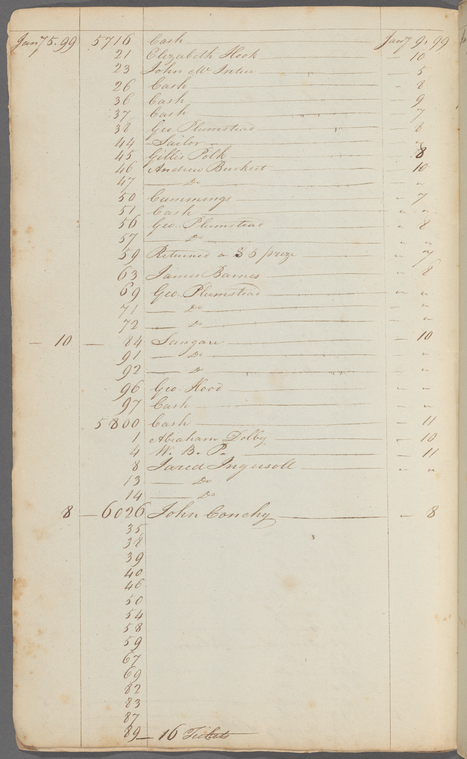 Jany 5. 99 5716 Cash Jany 9. 99
21 Elizabeth Hook 10
23 John Mc 5
26 Cash 8
36 Cash 9
37 Cash 7
38 Geo Plumstead 8
44 Sailor "
45 Gilles Polk 8
46 Andrew Burkert 10
47 — Do "
50 Cummings 7
51 Cash "
56 Geo. Plumstead 8
57 — Do "
59 Returned a prize 7
63 James Barnes 8
69 Geo. Plumstead "
71 — Do "
72 — Do "
— 10 — 84 Sangare 10
91 — Do "
92 — Do "
96 Geo Hood "
97 Cash "
5800 Cash 11
1 Abraham Dolby 10
4 W. B. P. 11
8 Jared Ingersoll "
13 — Do
14 — Do
8 — 6026 John Conchy — 8
35
38
39
40
46
50
54
58
59
67
69
82
83
87
89 — 16 Tickets